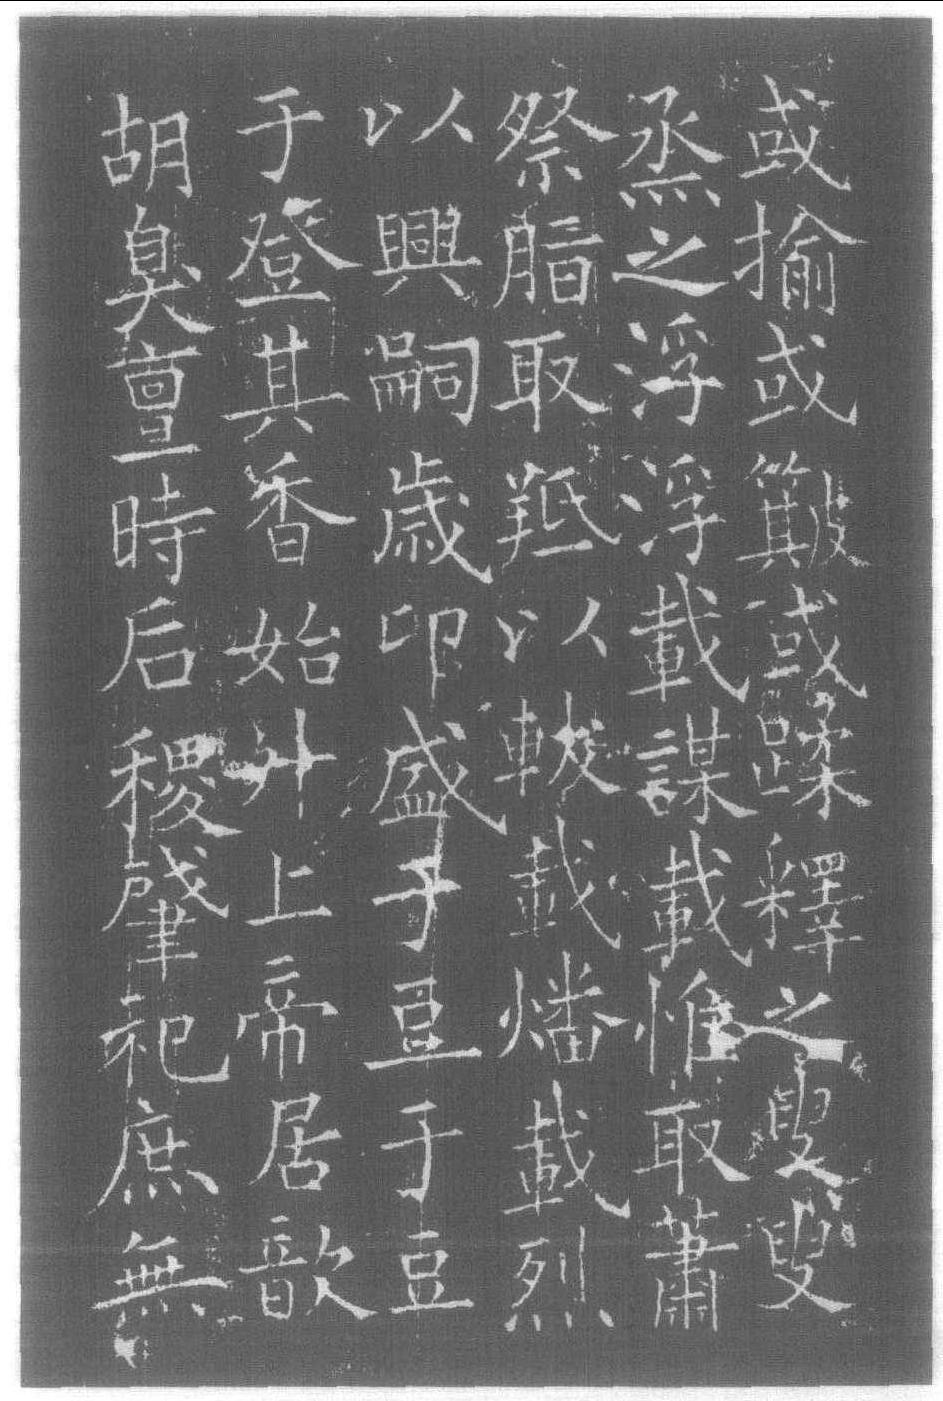 或揄或簸或蹂釋之叟叟
烝之浮浮載謀載惟取蕭
祭脂取羝以軷載燔載烈
以興嗣歲卬盛于豆于豆
于登其香始升上帝居歆
胡臭亶時后稷肇祀庶無